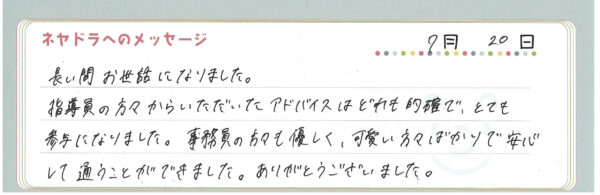 ネヤドラへのメッセージ
7月 20日
長い間お世話になりました。
指導員の方々からいただいたアドバイスはどれも的確で、とても
参考になりました。事務員の方々も優しく、可愛い方々ばかりで安心
して通うことができました。ありがとうございました。